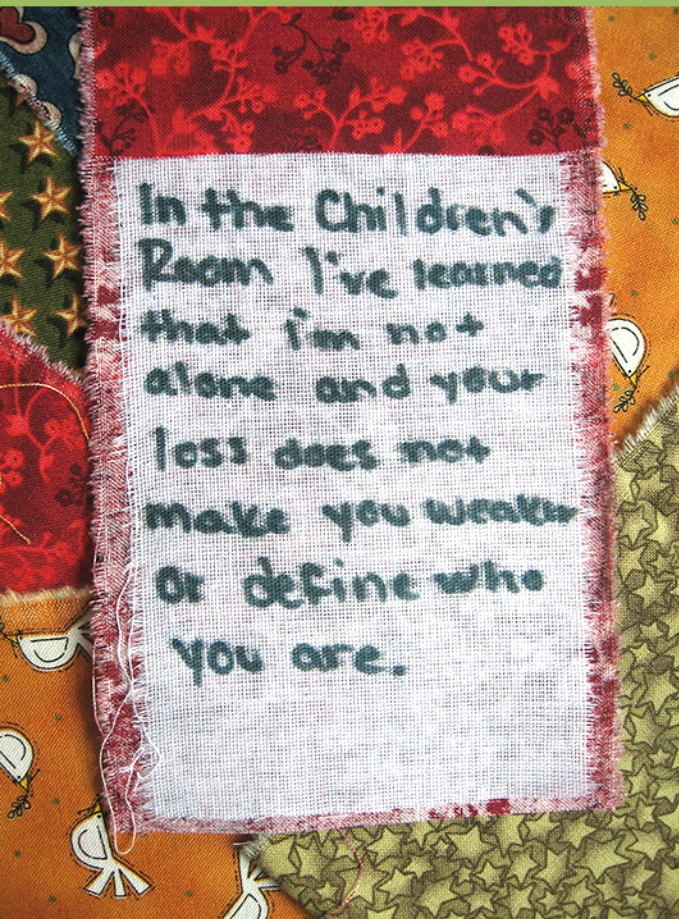 In the Children's
Room I've learned
that i'm not
alone and your
loss does not
make you weaker
or define who
you are.